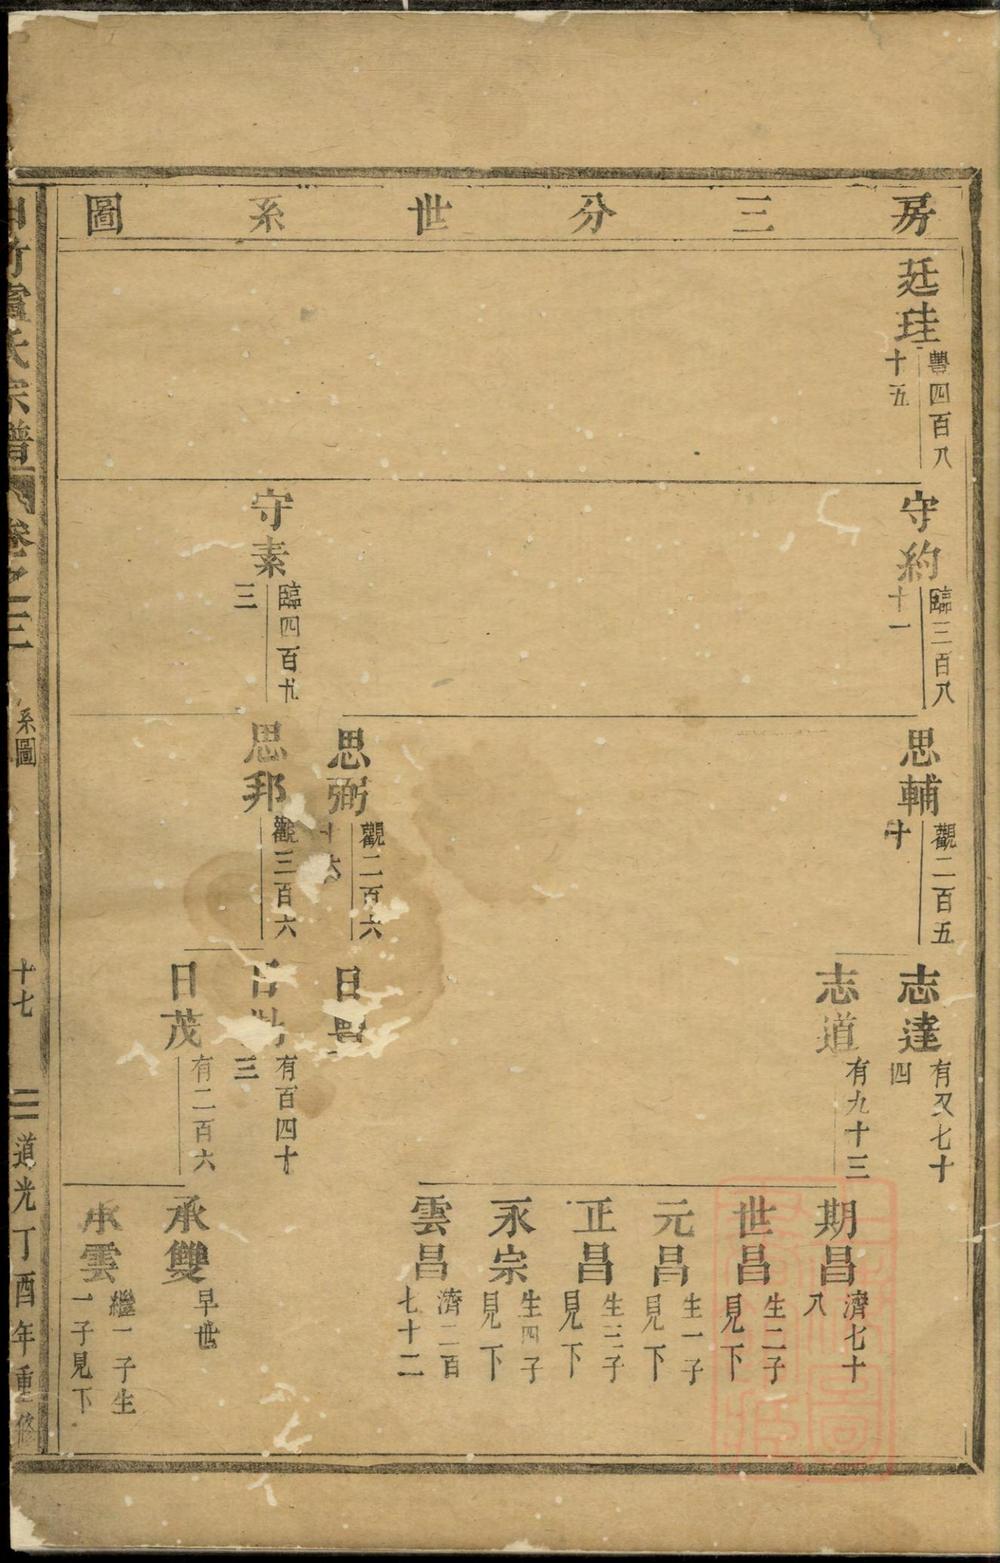 房三分世系圖
廷珪
豐四百八
十五
守約
臨三百八
十一
守素
臨四百九
三
思輔
觀二百五
十
思弼
觀二百六
十六
思邦
觀三百六
志達
有又七十
四
志道
有九十三
日
日
有百四十
三
日茂
有二百六
期昌
濟七十
八
世昌
生二子
見下
元昌
生一子
見下
正昌
生三子
見下
永宗
生四子
見下
雲昌
濟二百
七十二
承雙
早世
承雲
繼一子生
一子見下
竹盧氏宗譜
卷之三
系圖
十七
道光丁酉年重修